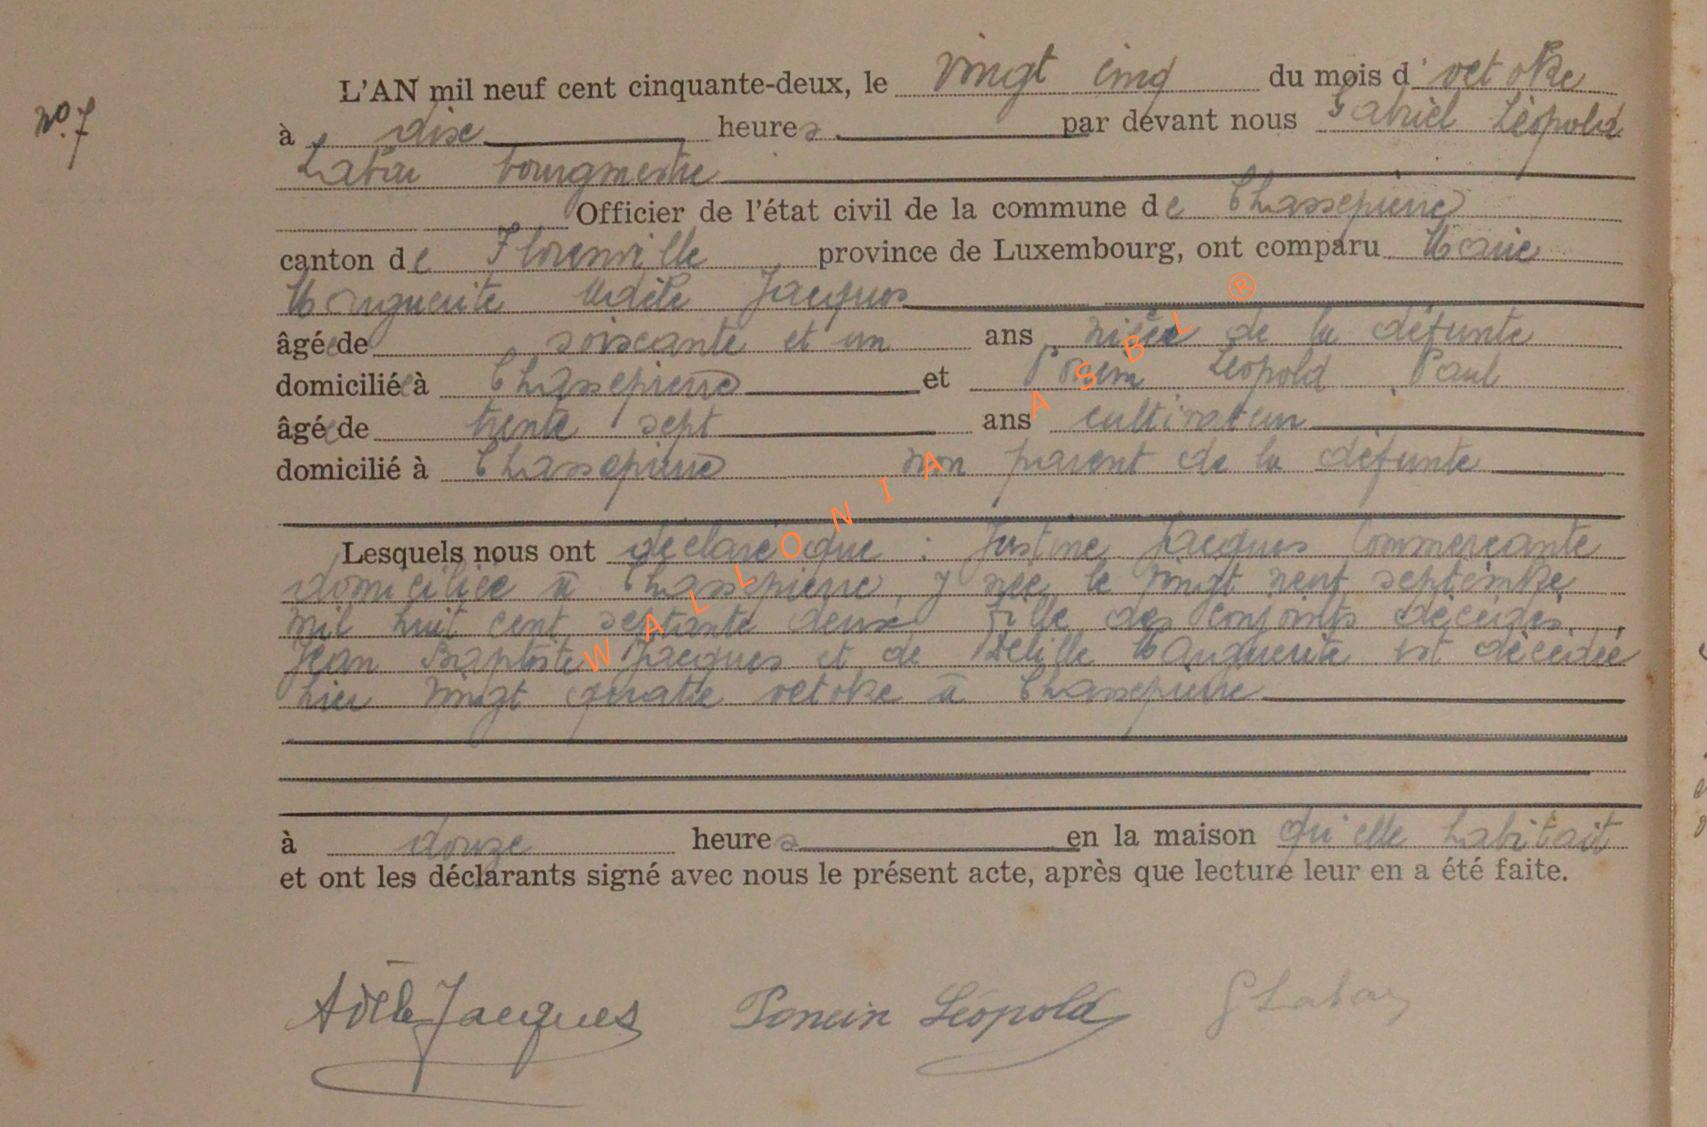 No. 7
L'AN mil neuf cent cinquante-deux, le vingt cinq du mois d'octobre
à dix heures par devant nous Gabriel Léopold
Labar bourgmestre
Officier de l'état civil de la commune de Chassepierre
canton de Florenville province de Luxembourg, ont comparu Marie
Marguerite Adèle Jacques
âgée de soixante et un ans nièce de la défunte
domiciliée à Chassepierre et Poncin Léopold Paul
âgé de trente sept ans cultivateur
domicilié à Chassepierre non parent de la défunte
Lesquels nous ont déclaré que : Justine Jacques Commerçante
domiciliée à Chassepierre, y née le vingt neuf septembre
mil huit cent septante deux fille des conjoints décédés
Jean Baptiste Jacques et de Marguerite est décédée
hier vingt quatre octobre à Chassepierre
à douze heures en la maison qu'elle habitait
et ont les déclarants signé avec nous le présent acte, après que lecture leur en a été faite.
Adèle Jacques Poncin Léopold G Labar
WALLONIA ASBL ®